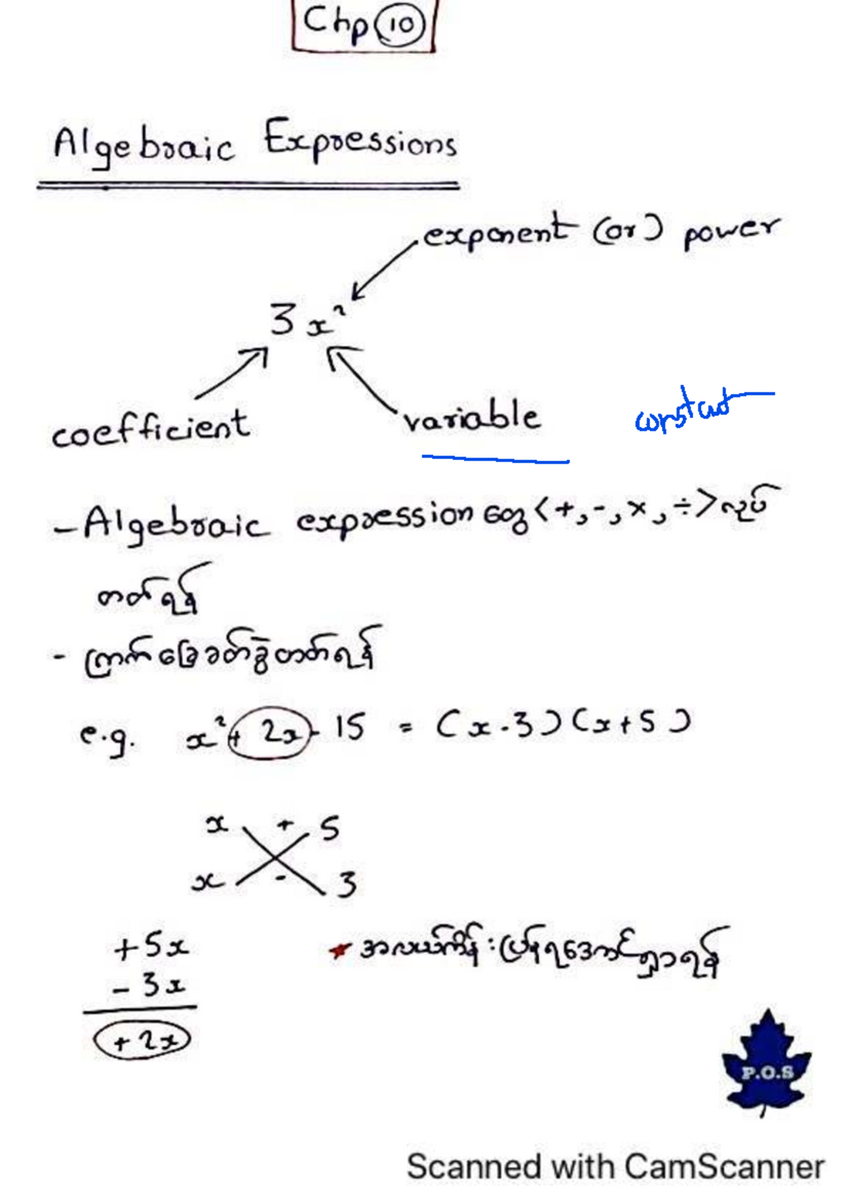 Chp 10
Algebraic Expressions
exponent (or) power
3x²
coefficient
variable
constant
- Algebraic expression တွေ <+, -, ×, ÷> လုပ်
တတ်ရန်
- ကြက်ခြေခတ်ခွဲတတ်ရန်
e.g. x² + 2x - 15 = (x - 3) (x + 5)
x + 5
x - 3
+5x
* အလယ်ကိန်းပြန်ရအောင်ရှာရန်
- 3x
+ 2x
P.O.S
Scanned with CamScanner